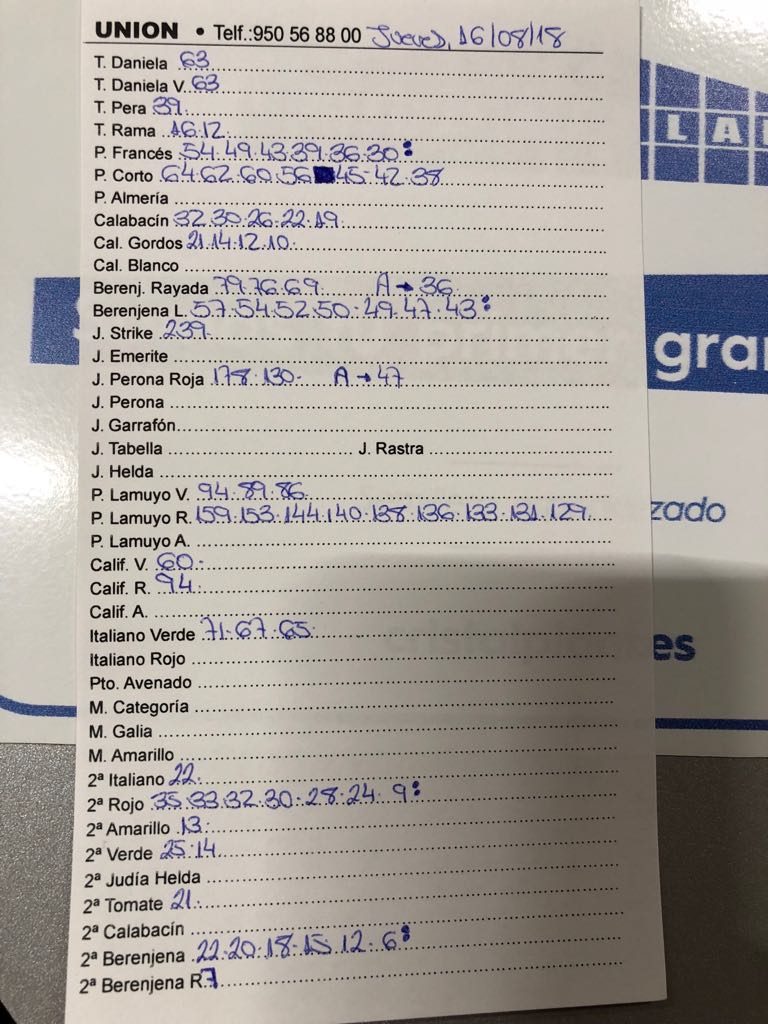 UNION • Telf.:950 56 88 00 Jueves, 16/08/18
T. Daniela 63
T. Daniela V. 63
T. Pera 39
T. Rama 16.12
P. Francés 54.49.43.39.36.30:
P. Corto 64.62.60.56 45.42.38
P. Almería
Calabacín 32.30.26.22.19
Cal. Gordos 21.14.12.10
Cal. Blanco
Berenj. Rayada 79.76.69 A→36
Berenjena L. 57.54.52.50.49.47.43:
J. Strike 239
J. Emerite
J. Perona Roja 178.130 A→47
J. Perona
J. Garrafón
J. Tabella J. Rastra
J. Helda
P. Lamuyo V. 94.89.86
P. Lamuyo R. 159.153.144.140.138.136.133.131.129
P. Lamuyo A.
Calif. V. 60
Calif. R. 94
Calif. A.
Italiano Verde 71.67.65
Italiano Rojo
Pto. Avenado
M. Categoría
M. Galia
M. Amarillo
2ª Italiano 22
2ª Rojo 35.33.32.30.28.24.9:
2ª Amarillo 13
2ª Verde 25.14
2ª Judía Helda
2ª Tomate 21
2ª Calabacín
2ª Berenjena 22.20.18.15.12.6:
2ª Berenjena R. 7
LA
gra
zado
es